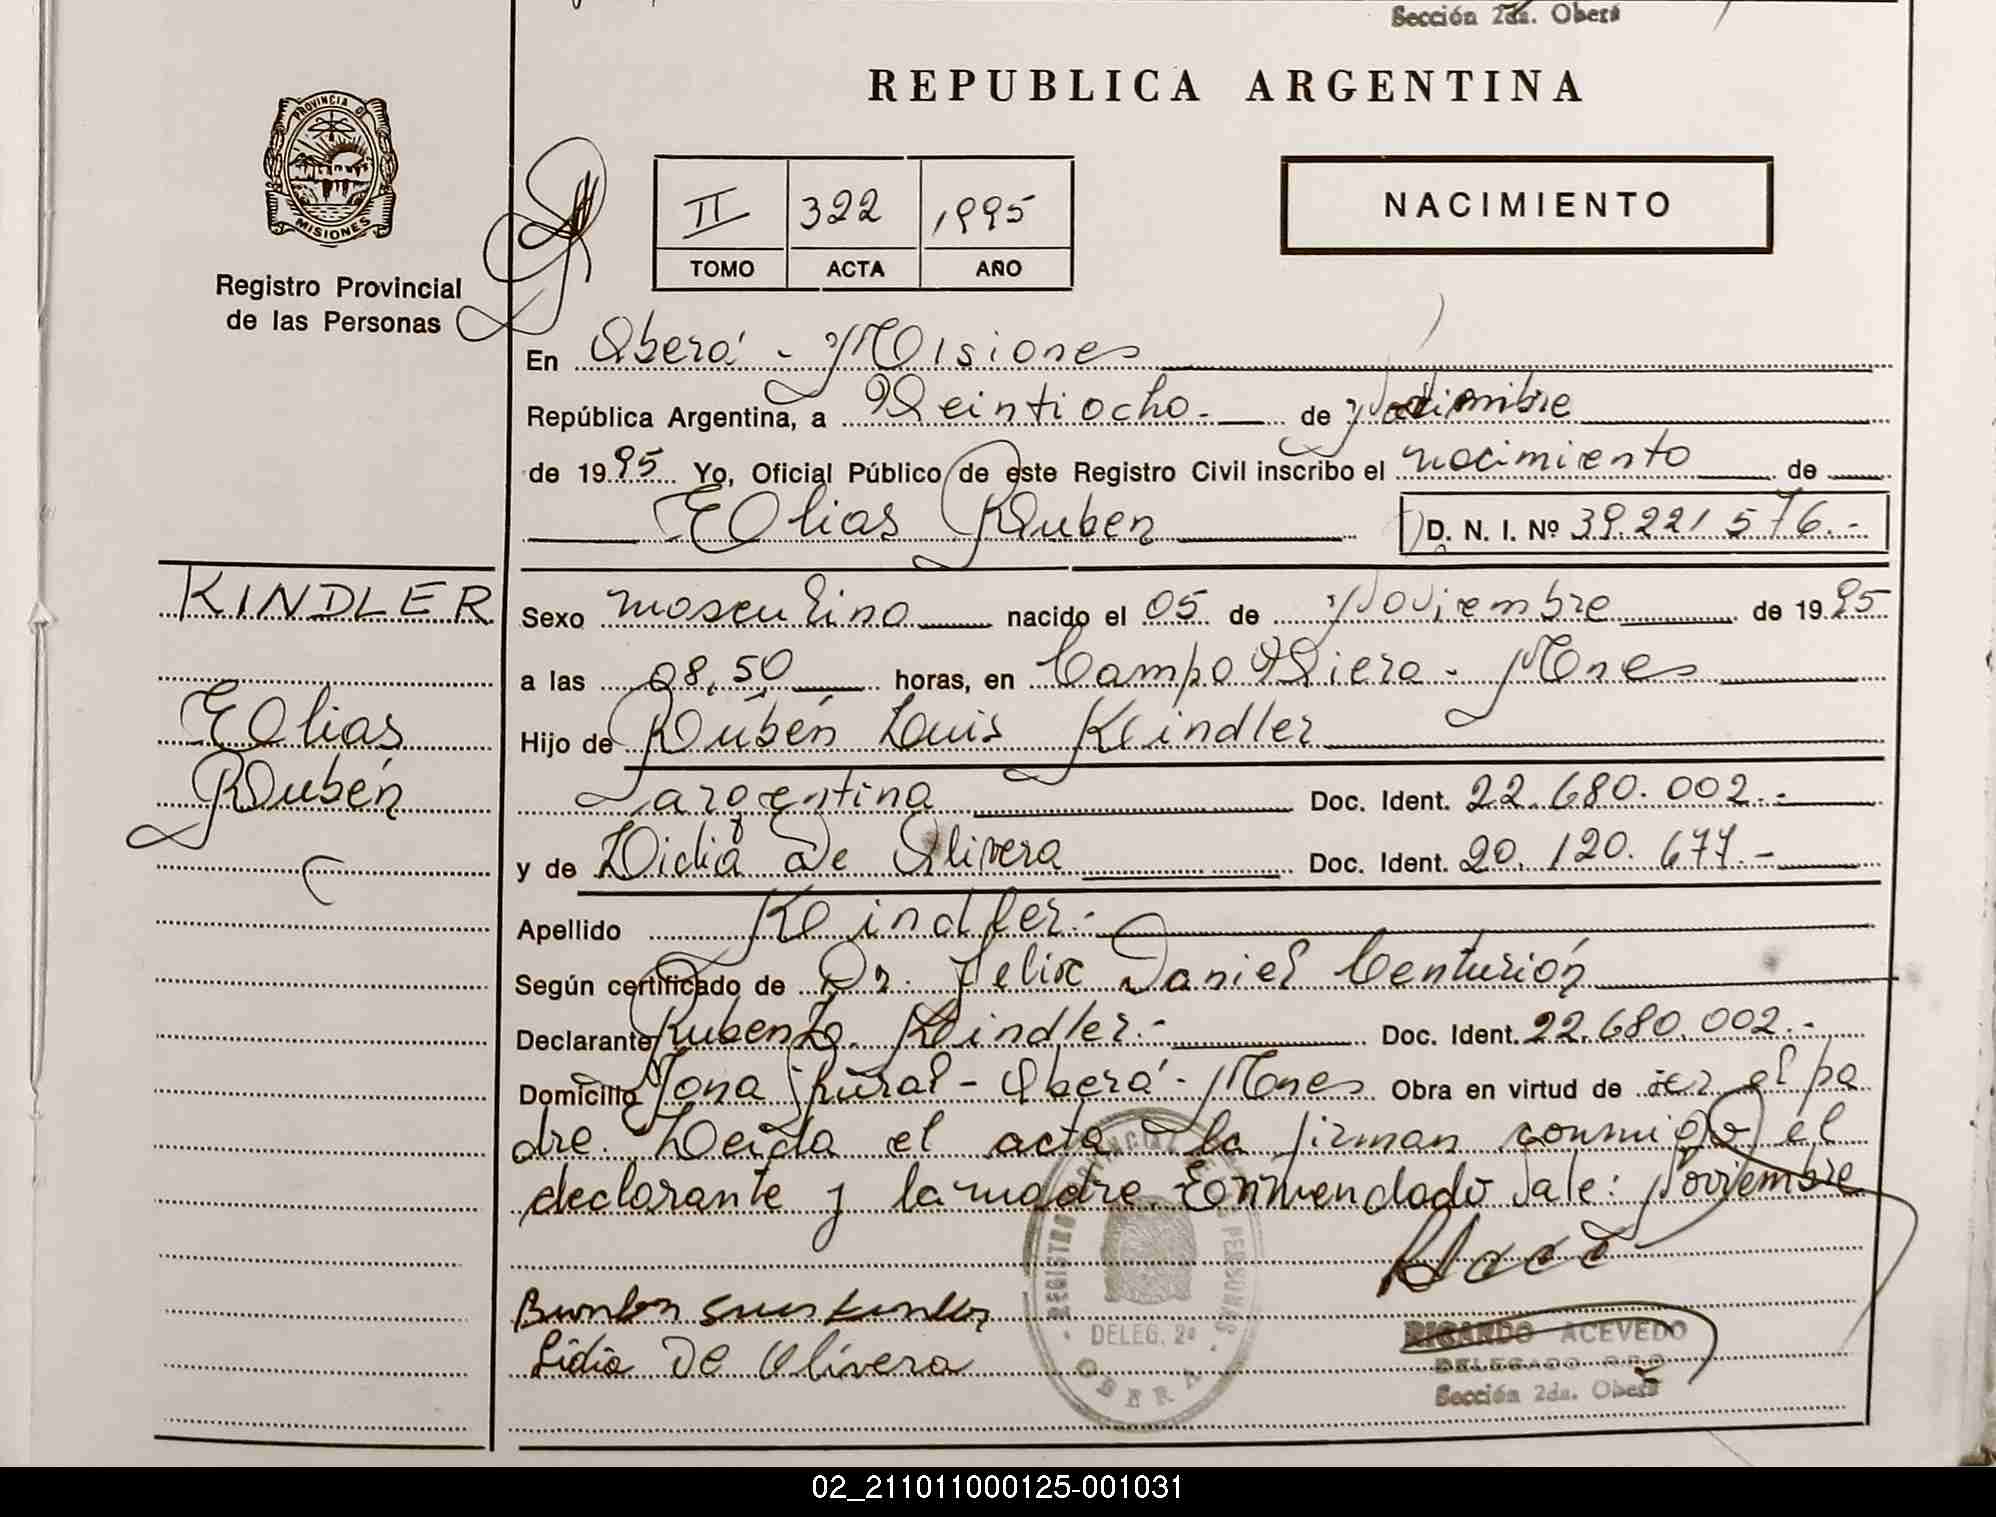 Sección 2da. Oberá
REPUBLICA ARGENTINA
PROVINCIA DE
MISIONES
Registro Provincial
de las Personas
II 322 1995
TOMO ACTA AÑO
NACIMIENTO
En Oberá - Misiones
República Argentina, a Veintiocho.- de Noviembre
de 1995 Yo, Oficial Público de este Registro Civil inscribo el nacimiento de
Elias Ruben D. N. I. Nº 39.221.576.-
KINDLER
Elias
Rubén
Sexo masculino nacido el 05 de Noviembre de 1995
a las 08,50 horas, en Campo Viera - Mnes
Hijo de Rubén Luis Kindler
argentina Doc. Ident. 22.680.002.-
y de Lidia De Olivera Doc. Ident. 20.120.677.-
Apellido Kindler.-
Según certificado de Dr. Felix Daniel Centurión
Declarante Ruben L. Kindler.- Doc. Ident. 22.680.002.-
Domicilio Zona Rural - Oberá - Mnes Obra en virtud de ser el pa
dre. Leida el acta la firman conmigo el
declarante y la madre. Enmendado Vale: Noviembre
REGISTRO PROVINCIAL DE LAS PERSONAS
DELEG. 2ª
OBERA
Lidia De Olivera
RICARDO ACEVEDO
DELEGADO R.P.P
Sección 2da. Oberá
02_211011000125-001031